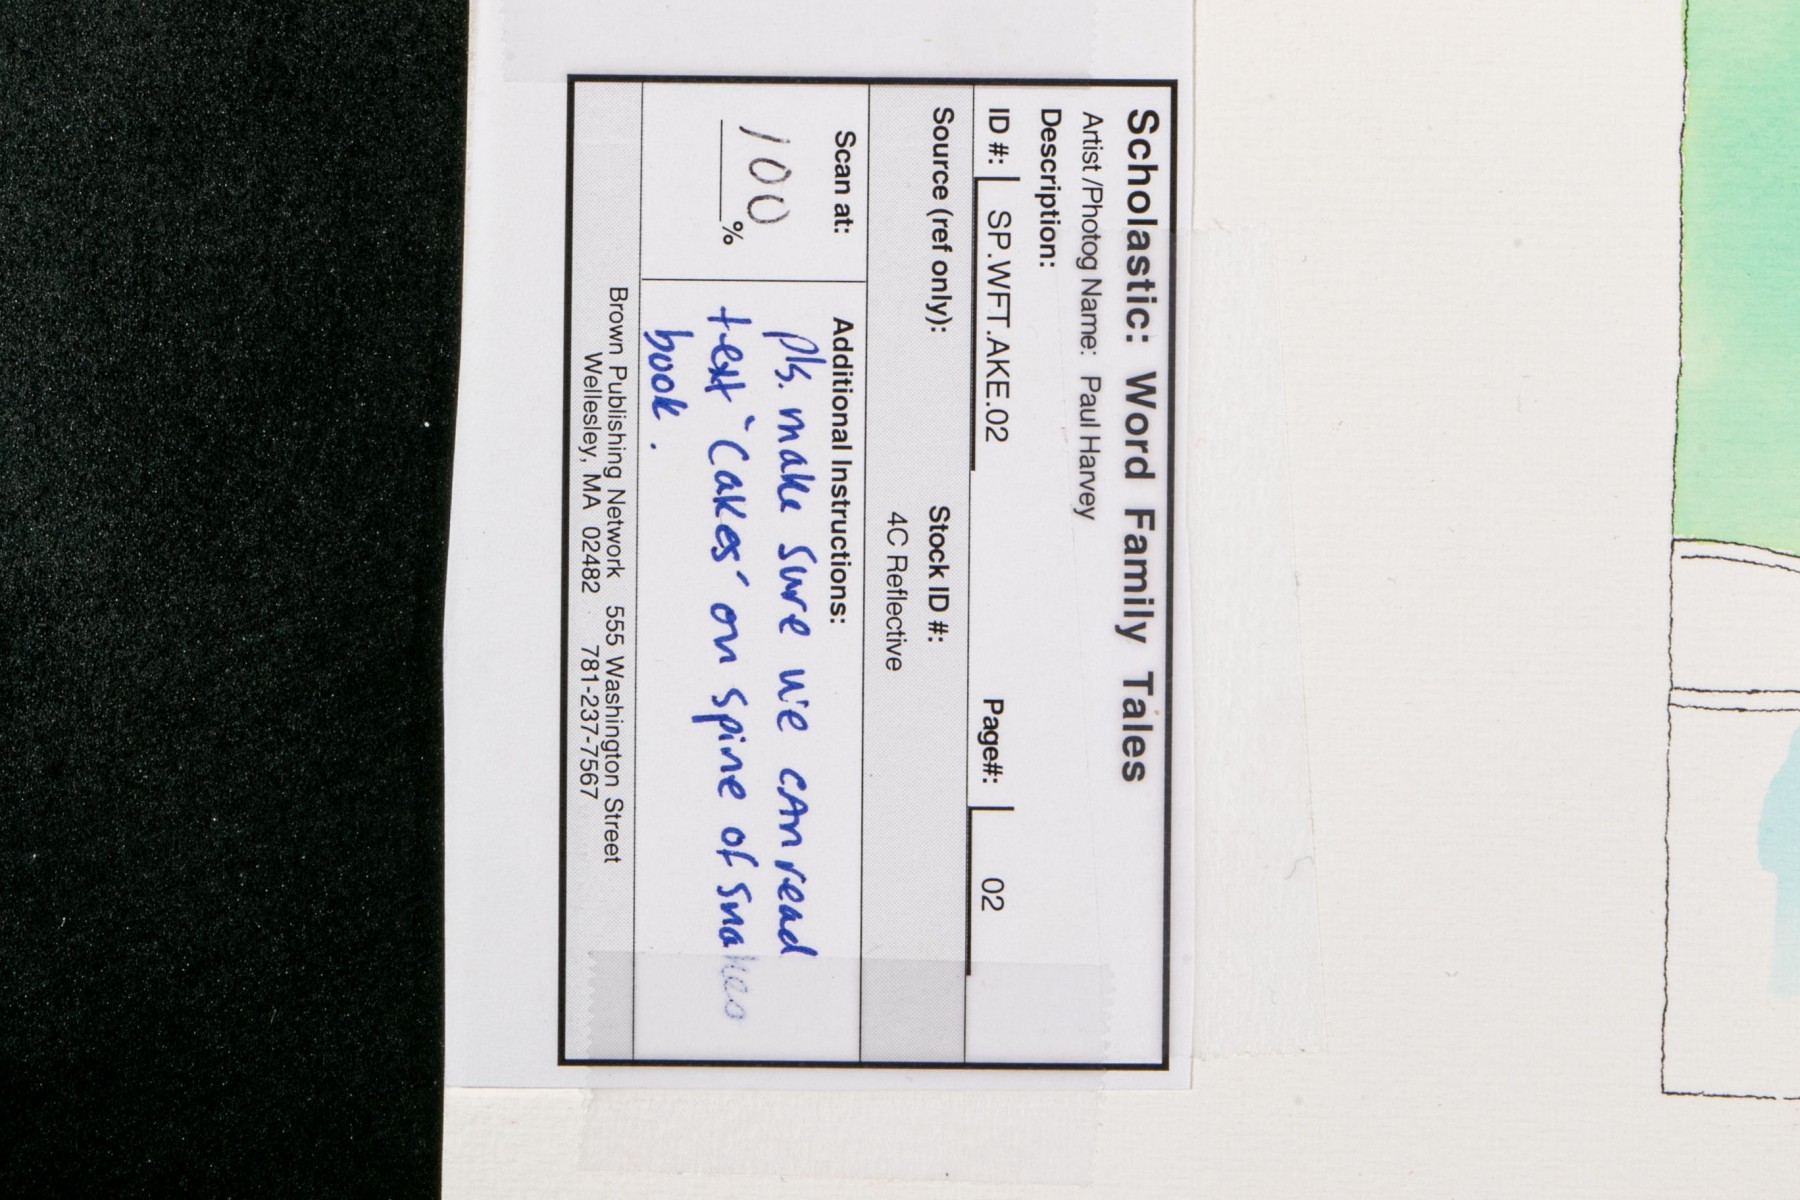 Scholastic: Word Family Tales
Artist /Photog Name: Paul Harvey
Description:
ID #: SP.WFT.AKE.02 Page#: 02
Source (ref only): Stock ID #:
4C Reflective
Scan at: Additional Instructions:
100 %
pls. make sure we can read
text 'Cakes' on spine of snakes
book.
Brown Publishing Network 555 Washington Street
Wellesley, MA 02482 781-237-7567